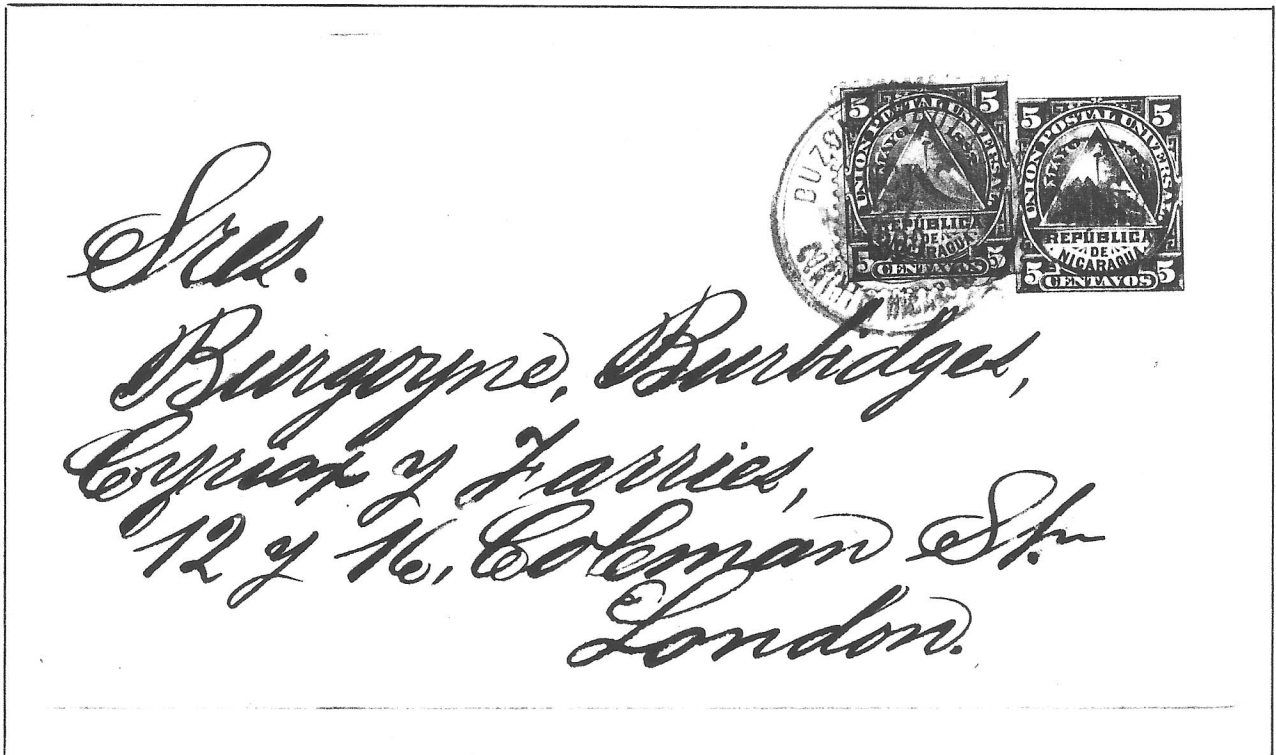 5 5
UNION POSTAL UNIVERSAL
MAYO
REPÚBLICA
DE
NICARAGUA
5 CENTAVOS 5
5 5
UNION POSTAL UNIVERSAL
MAYO
REPÚBLICA
DE
NICARAGUA
5 CENTAVOS 5
Sres.
Burgoyne, Burbidges,
Cyriax y Farries,
12 y 16, Coleman St.
London.